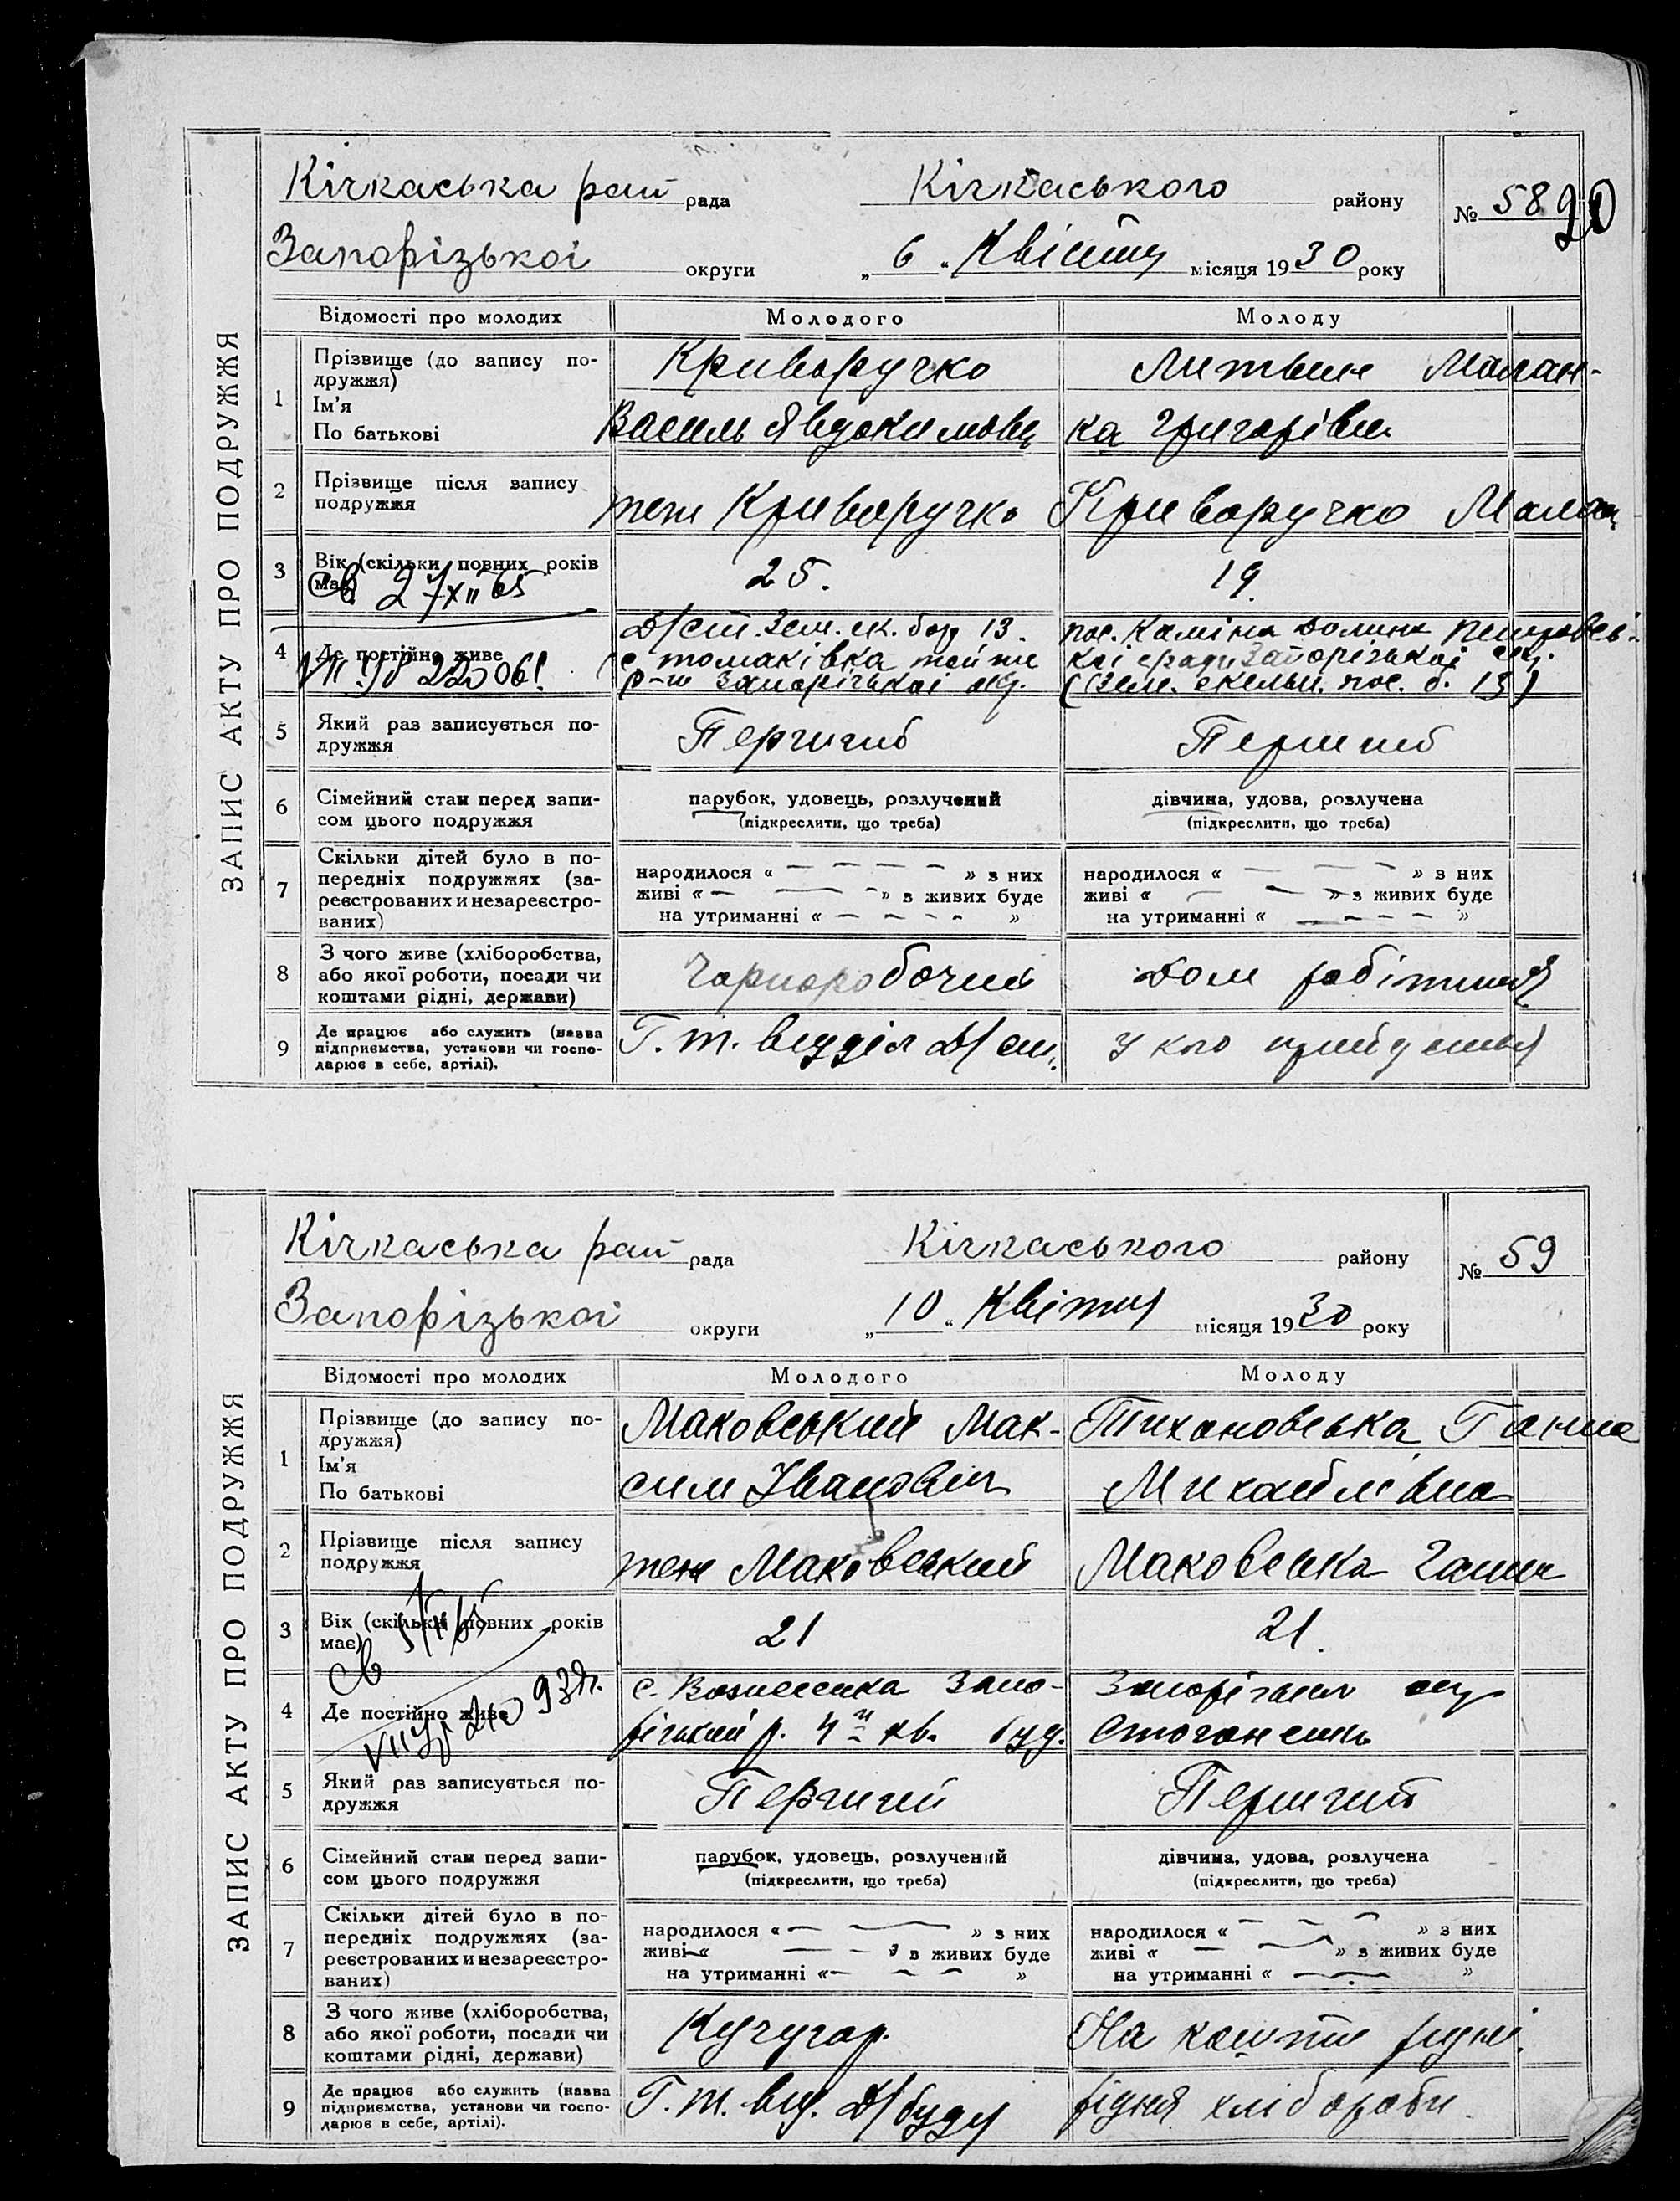 ЗАПИС АКТУ ПРО ПОДРУЖЖЯ
Кічкаська рай рада Кічкаського району № 58 20
Запорізької округи „ 6 “ Квітня місяця 1930 року
Відомості про молодих Молодого Молоду
1 Прізвище (до запису по-
дружжя)
Ім'я
По батькові
Криворучко
Василь Явдокимович
Литвин Малан-
ка Григорівна
2 Прізвище після запису
подружжя
теж Криворучко
Криворучко Малан
3 Вік (скільки повних років
має)
св 27/XII 65
25.
19.
4 Де постійно живе
Д/ст. Зем. ск. бор 13.
с. томаківка тойже
р-н Запорізької окр.
пос. Каміна Долина
кої сради Запорізької окр.
(Зем. скельн. пос. б. 13)
5 Який раз записується по-
дружжя
Перший
Перший
6 Сімейний стан перед запи-
сом цього подружжя
парубок, удовець, розлучений
(підкреслити, що треба)
дівчина, удова, розлучена
(підкреслити, що треба)
7 Скільки дітей було в по-
передніх подружжях (за-
реєстрованих и незареєстро-
ваних)
народилося « — — — — » з них
живі « — — — » з живих буде
на утриманні « — — — — »
народилося « — — — » з них
живі « — — » з живих буде
на утриманні « — — — — »
8 З чого живе (хліборобства,
або якої роботи, посади чи
коштами рідні, держави)
Чорноробочий
Дом робітниця
9 Де працює або служить (назва
підприємства, установи чи госпо-
дарює в себе, артілі).
Г. т. відділ Д/ст.
У кого прийдеться
ЗАПИС АКТУ ПРО ПОДРУЖЖЯ
Кічкаська рай рада Кічкаського району № 59
Запорізької округи „ 10 “ Квітня місяця 1930 року
Відомості про молодих Молодого Молоду
1 Прізвище (до запису по-
дружжя)
Ім'я
По батькові
Маковський Мак-
сим Іванович
Тихоновська Ганна
Михайлівна
2 Прізвище після запису
подружжя
теж Маковський
Маковська Ганна
3 Вік (скільки повних років
має)
св
21
21.
4 Де постійно живе
с. Вознесенка Запо-
різький р. 4й кв. буд.
Запорізька окр
5 Який раз записується по-
дружжя
Перший
Перший
6 Сімейний стан перед запи-
сом цього подружжя
парубок, удовець, розлучений
(підкреслити, що треба)
дівчина, удова, розлучена
(підкреслити, що треба)
7 Скільки дітей було в по-
передніх подружжях (за-
реєстрованих и незареєстро-
ваних)
народилося « — — » з них
живі « — — » в живих буде
на утриманні « — — — »
народилося « — — — » з них
живі « — — » з живих буде
на утриманні « — — »
8 З чого живе (хліборобства,
або якої роботи, посади чи
коштами рідні, держави)
Кучугар.
На кошти рідні.
9 Де працює або служить (назва
підприємства, установи чи госпо-
дарює в себе, артілі).
Г. т. від. Д/буду
рідня хлібороби.